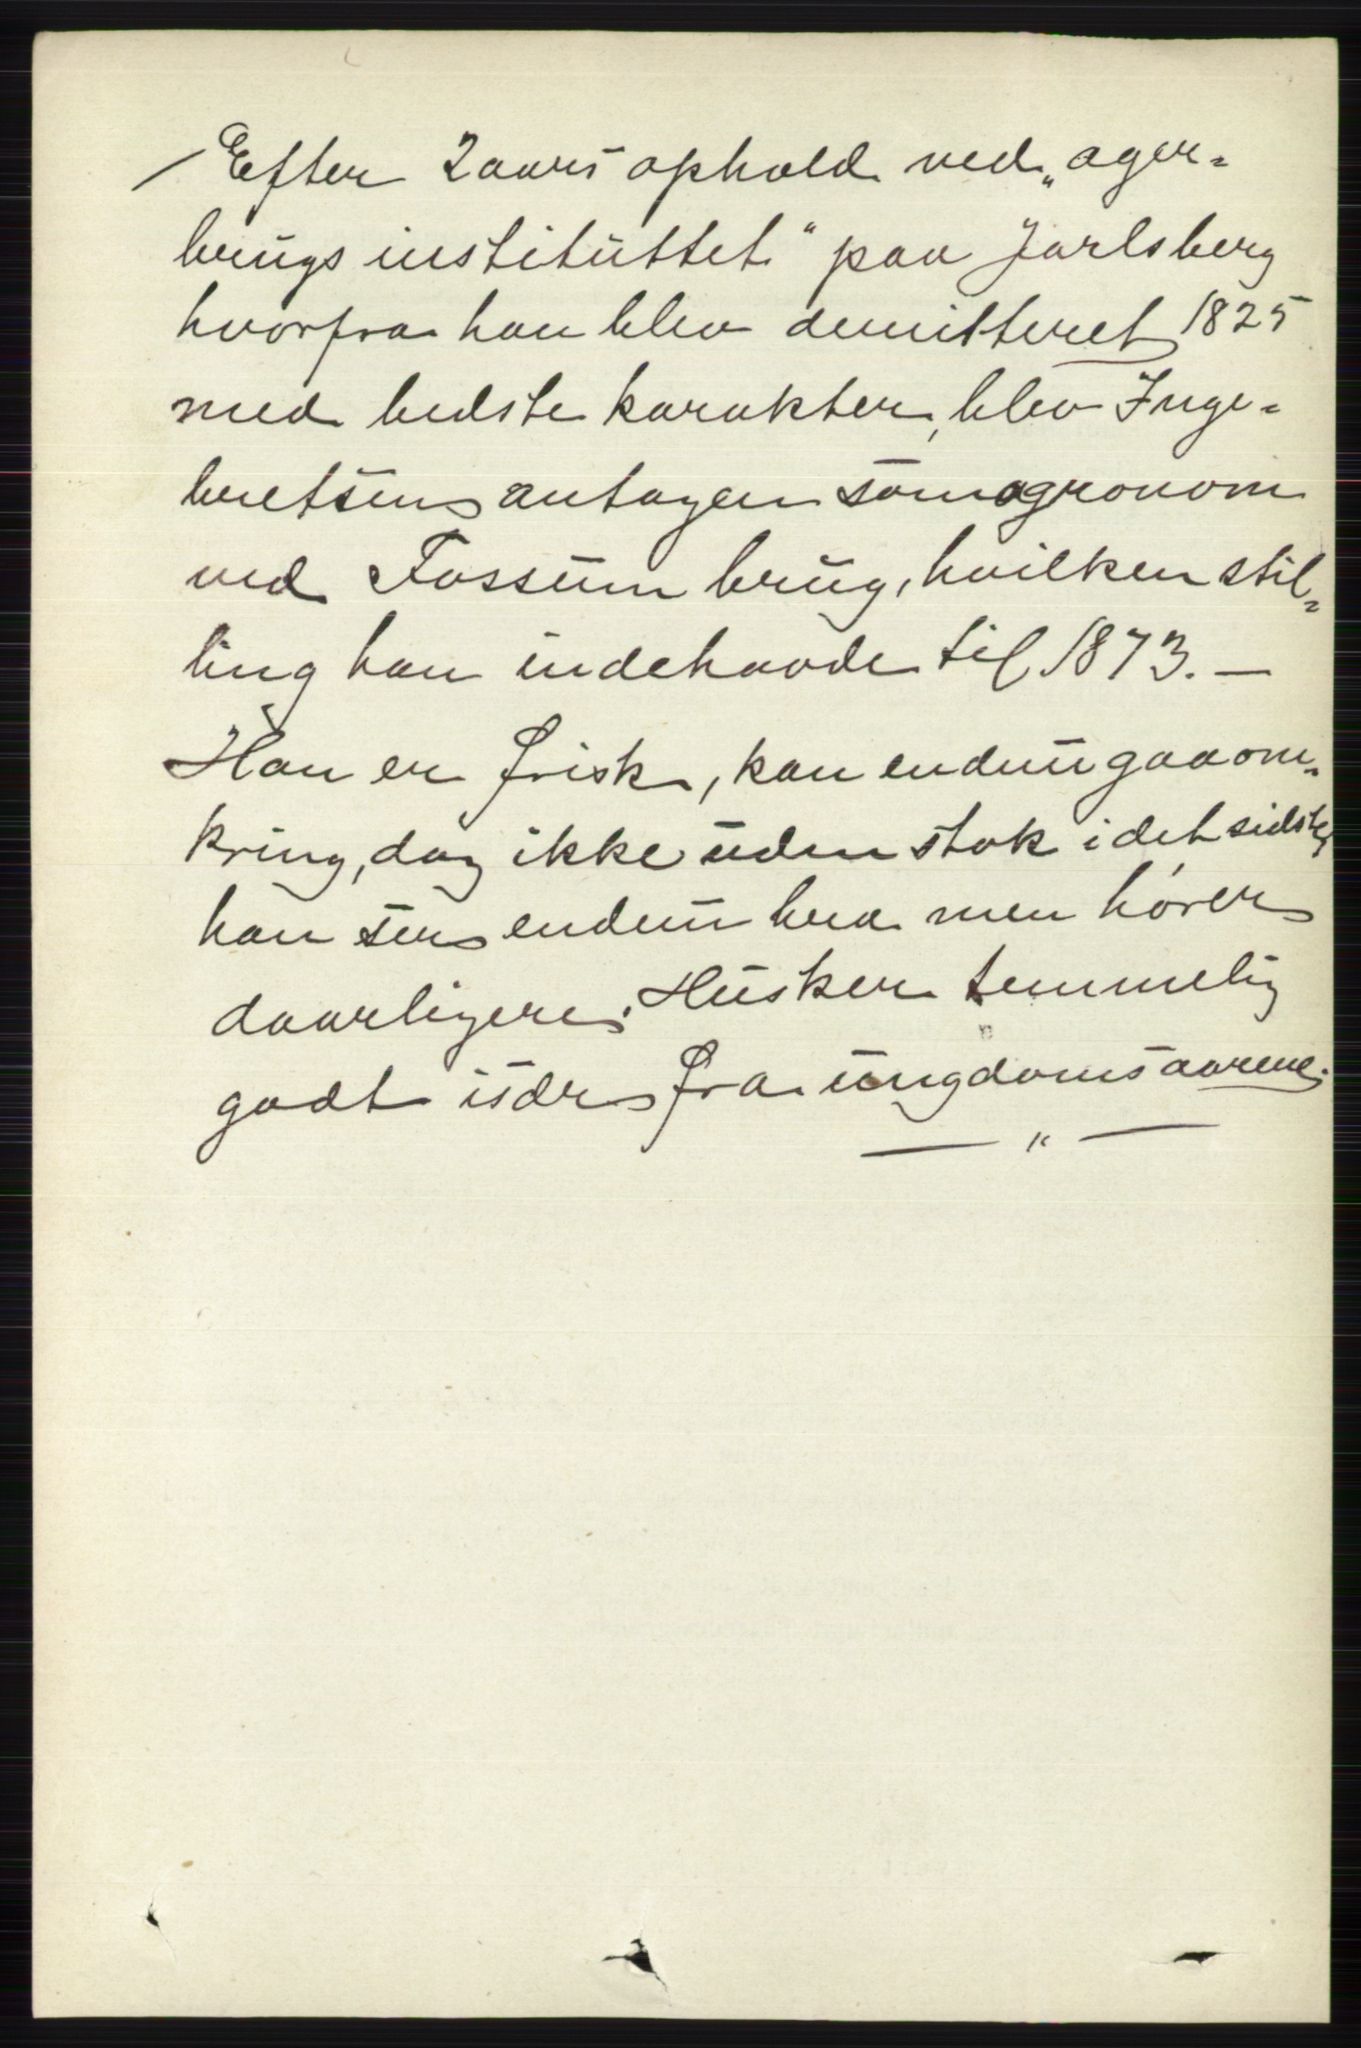 Efter 2 aars ophold ved „ager-
brugs instituttet“ paa Jarlsberg
hvorfra han blev demitteret 1825
med bedste karakter, blev Inge-
bretsen antagen som agronom
ved Fossum brug, hvilken stil-
ling han indehavde til 1873. —
Han er frisk, kan endnu gaa om-
kring, dog ikke uden stok i det sidste,
han ser endnu bra men hører
daarligere. Husker temmelig
godt især fra ungdomsaarene.
— „ —